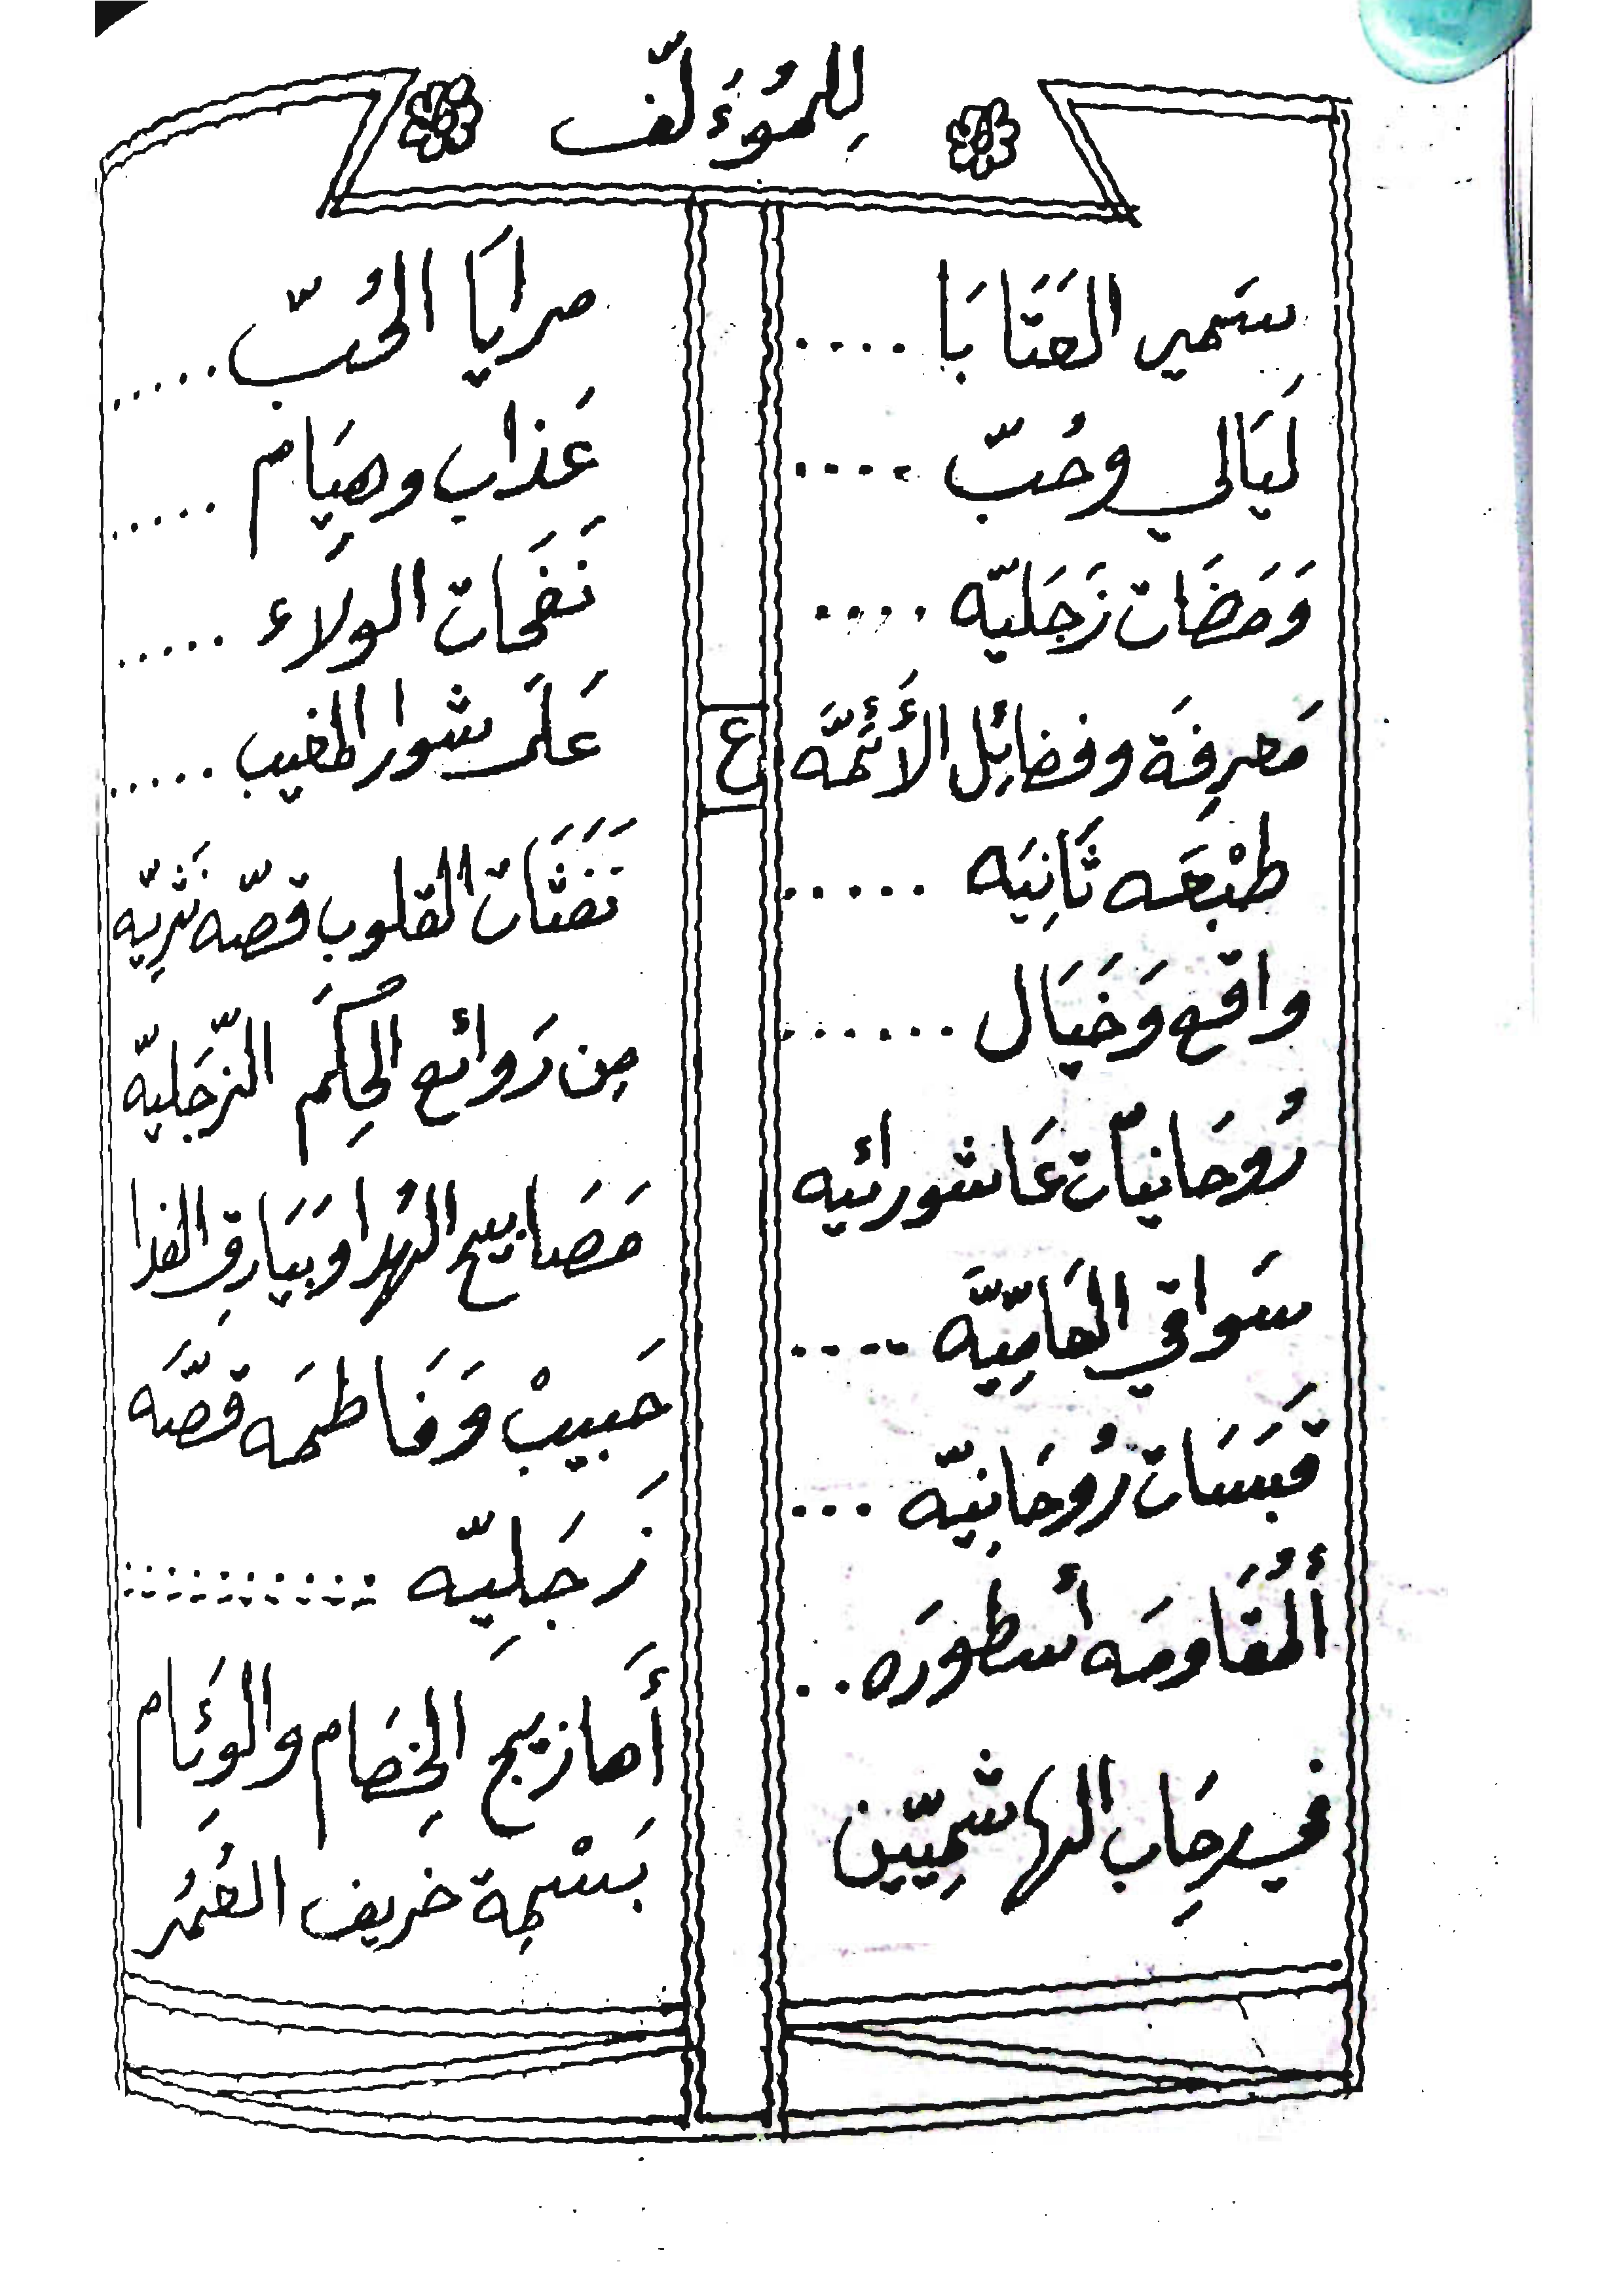 لِلمُؤَلّف
سَمير العَتَابَا ....
لَيَالي وحُبّ ....
وَمَضَات زَجَليّه ....
مَعرِفَة وفضائِل الأَئمَّه
طبْعَه ثَانِيَه .....
واقع وَخَيَال ......
رُوحَانيّات عَاشورائيه
سَواقي العَامِّيَّه ....
قَبَسَات رُوحَانِيّه ...
ألمُقَاومَه أسطورَه ..
في رِحَاب الهاشمِيّين
ع
مرايَا الحُبّ .....
عَذاب وهِيَام .....
نَفَحَات الولاء .....
عَلَى شوار المغيب .....
نَفَثَات القلوب قصّه نَثرِيّه
مِن رَوائع الحِكَم الزّجَليّه
مَصَابيح الهُدا وَبَيَارِق الفدا
حَبيبْ وَفَاطمَه قصّه
زَجَلِيّه ..........
أَهازيج الخِصَام والوِئَام
بَسْمِة خَريف العُمُر